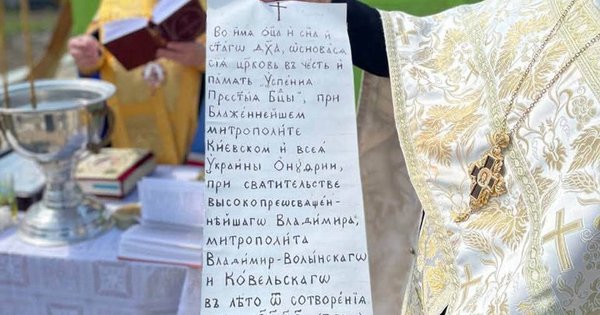 Во имѧ Ѻц҃а и Сн҃а и
Ст҃агѡ Дх҃а, ѡсновасѧ
сїѧ црковь въ честь и
память "Успенїа
Прест҃ыѧ Бц҃ы", при
Блаженнѣйшем
митрополите
Кїевском и всеѧ
Украины Онуфрии,
при святительстве
высокопреосвѧщен-
нѣйшагѡ Владимира,
митрополита
Владимир-Волынскагѡ
и Ковельскагѡ
въ лѣто ѿ сотворенїѧ